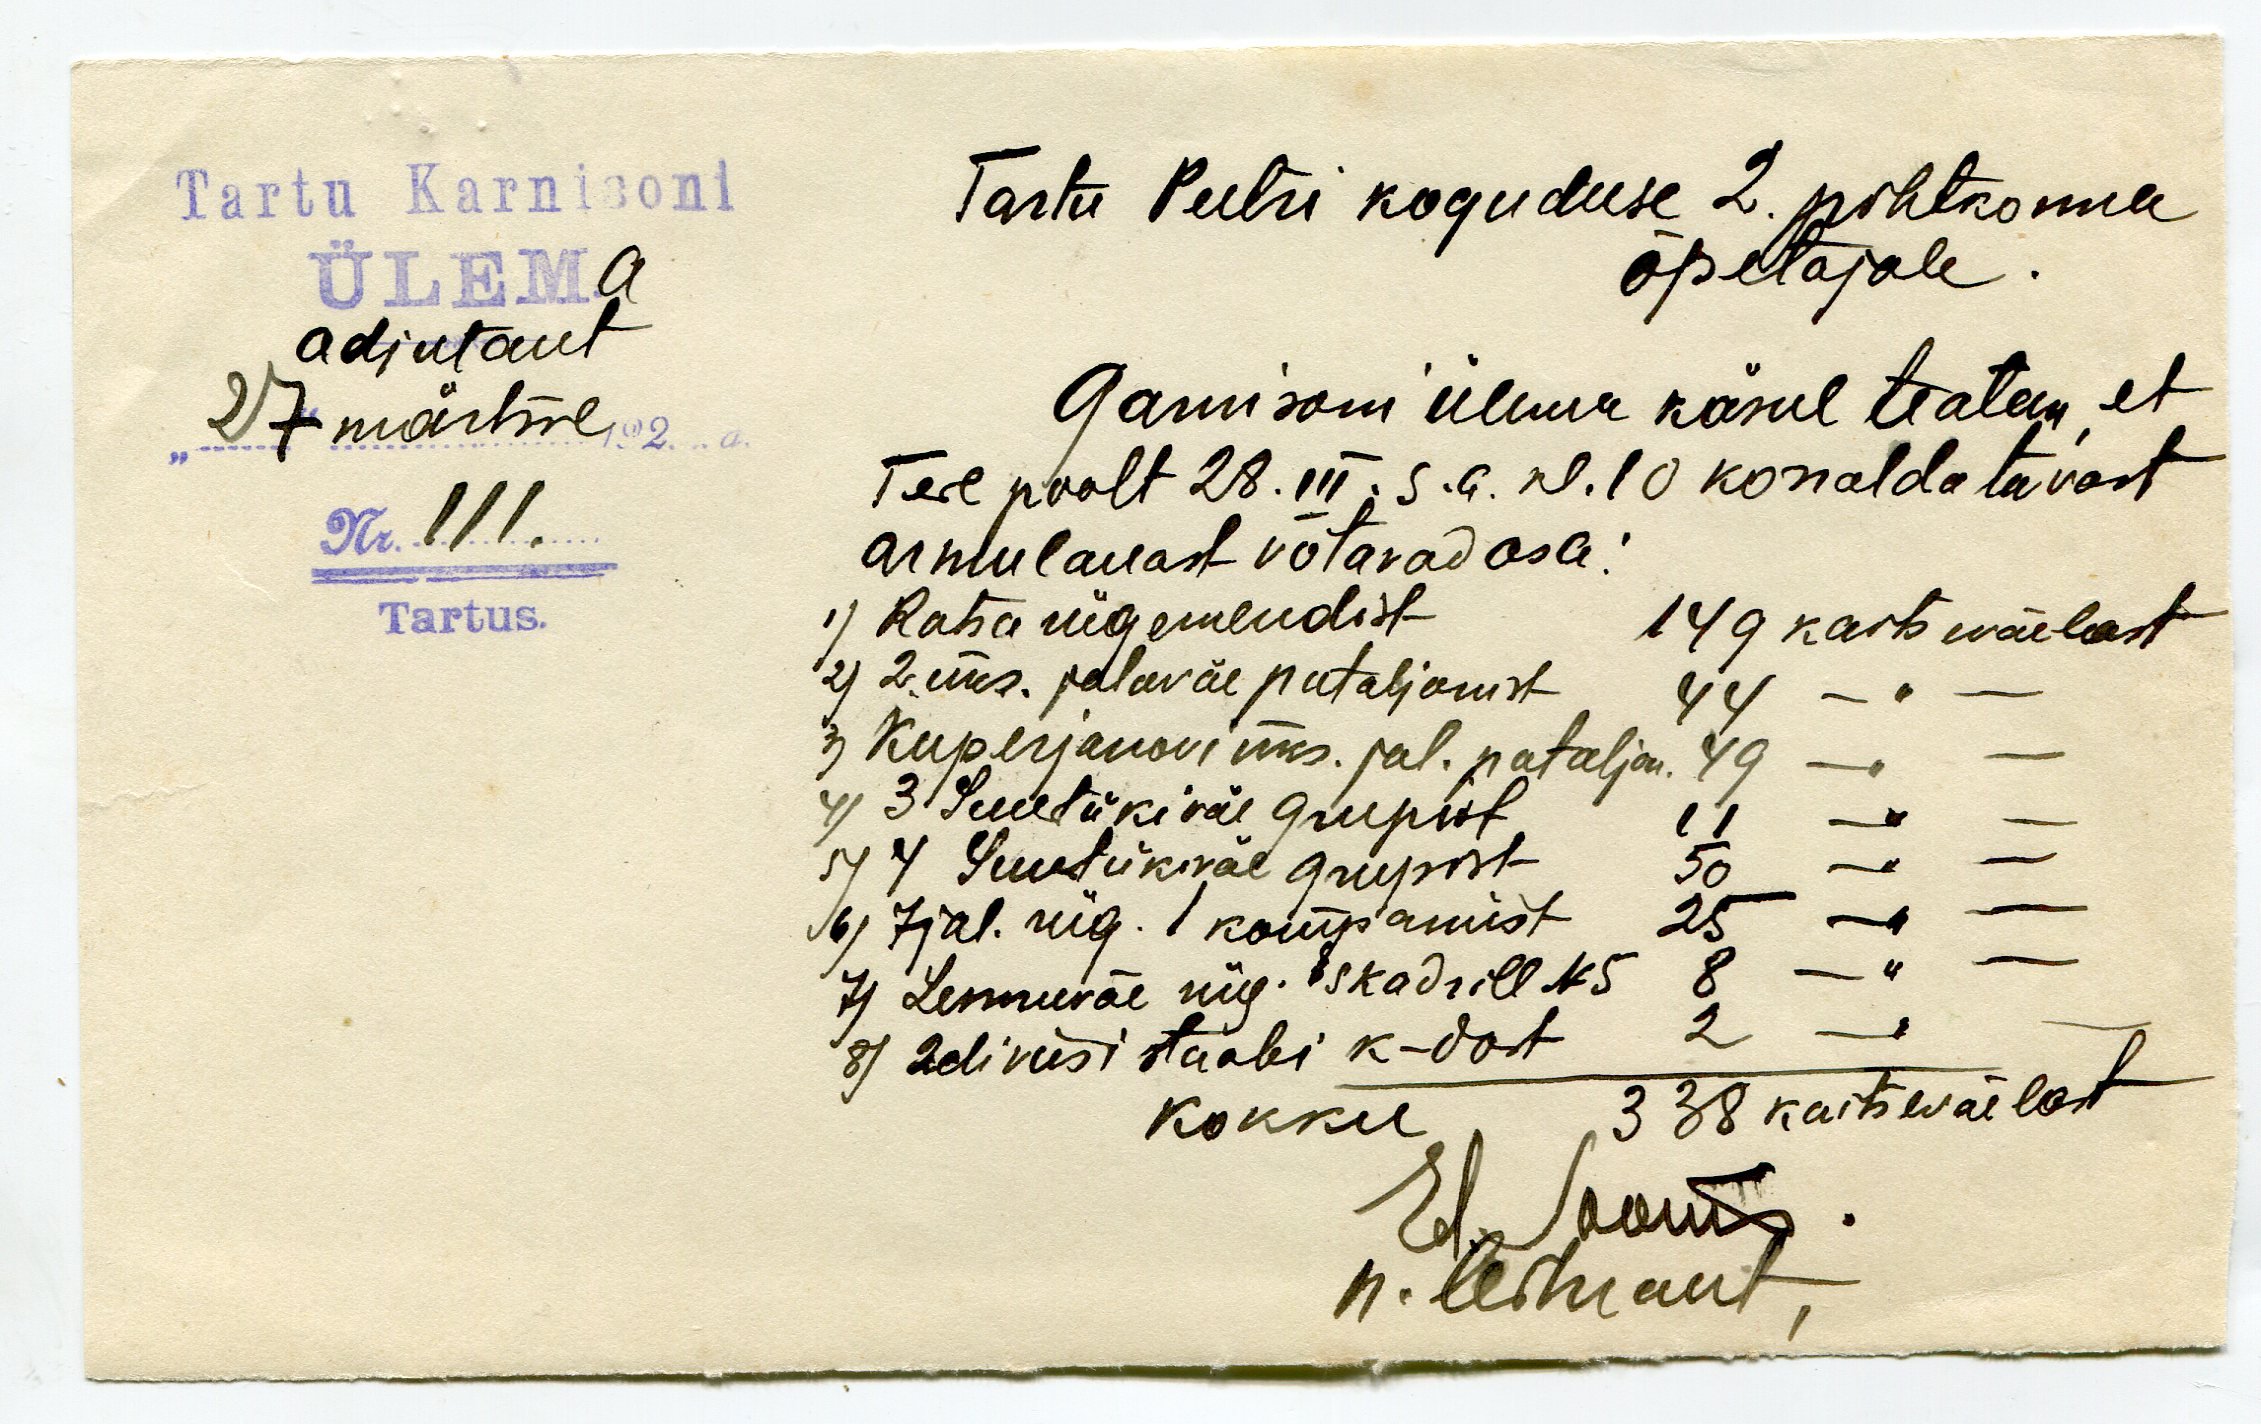 Tartu Karnisoni
ÜLEMa
adjutant
"27" märtsil 192...a.
Nr. 111.
Tartus.
Tartu Peetri koguduse 2. pihtkonna
õpetajale.
Garnisoni ülema käsul teatan, et
Teie poolt 28. III. s.a. kl. 10 korraldatavast
armulauast võtavad osa:
1) Ratsa rügemendist 149 kaitsewäelast
2) 2. üks. jalaväe pataljonist 44 — " —
3) Kuperjanovi üks. jal. pataljon. 49 — " —
4) 3 Suurtükiväe grupist 11 — " —
5) 4 Suurtükiväe grupist 50 — " —
6) 7 jal. rüg. 1 kompaniist 25 — " —
7) Lennuväe rüg. eskadrill N5 8 — " —
8) 2 diviisi staabi k-dost 2 — " —
Kokku 338 kaitsewäelast
Ed.
n. leitnant,